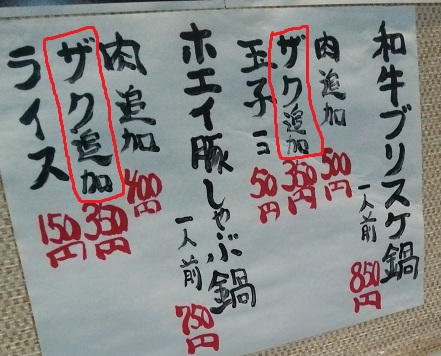 和牛ブリスケ鍋 一人前 850円
肉追加 500円
ザク追加 350円
玉子一コ 50円
ホエイ豚しゃぶ鍋 一人前 750円
肉追加 400円
ザク追加 350円
ライス 150円